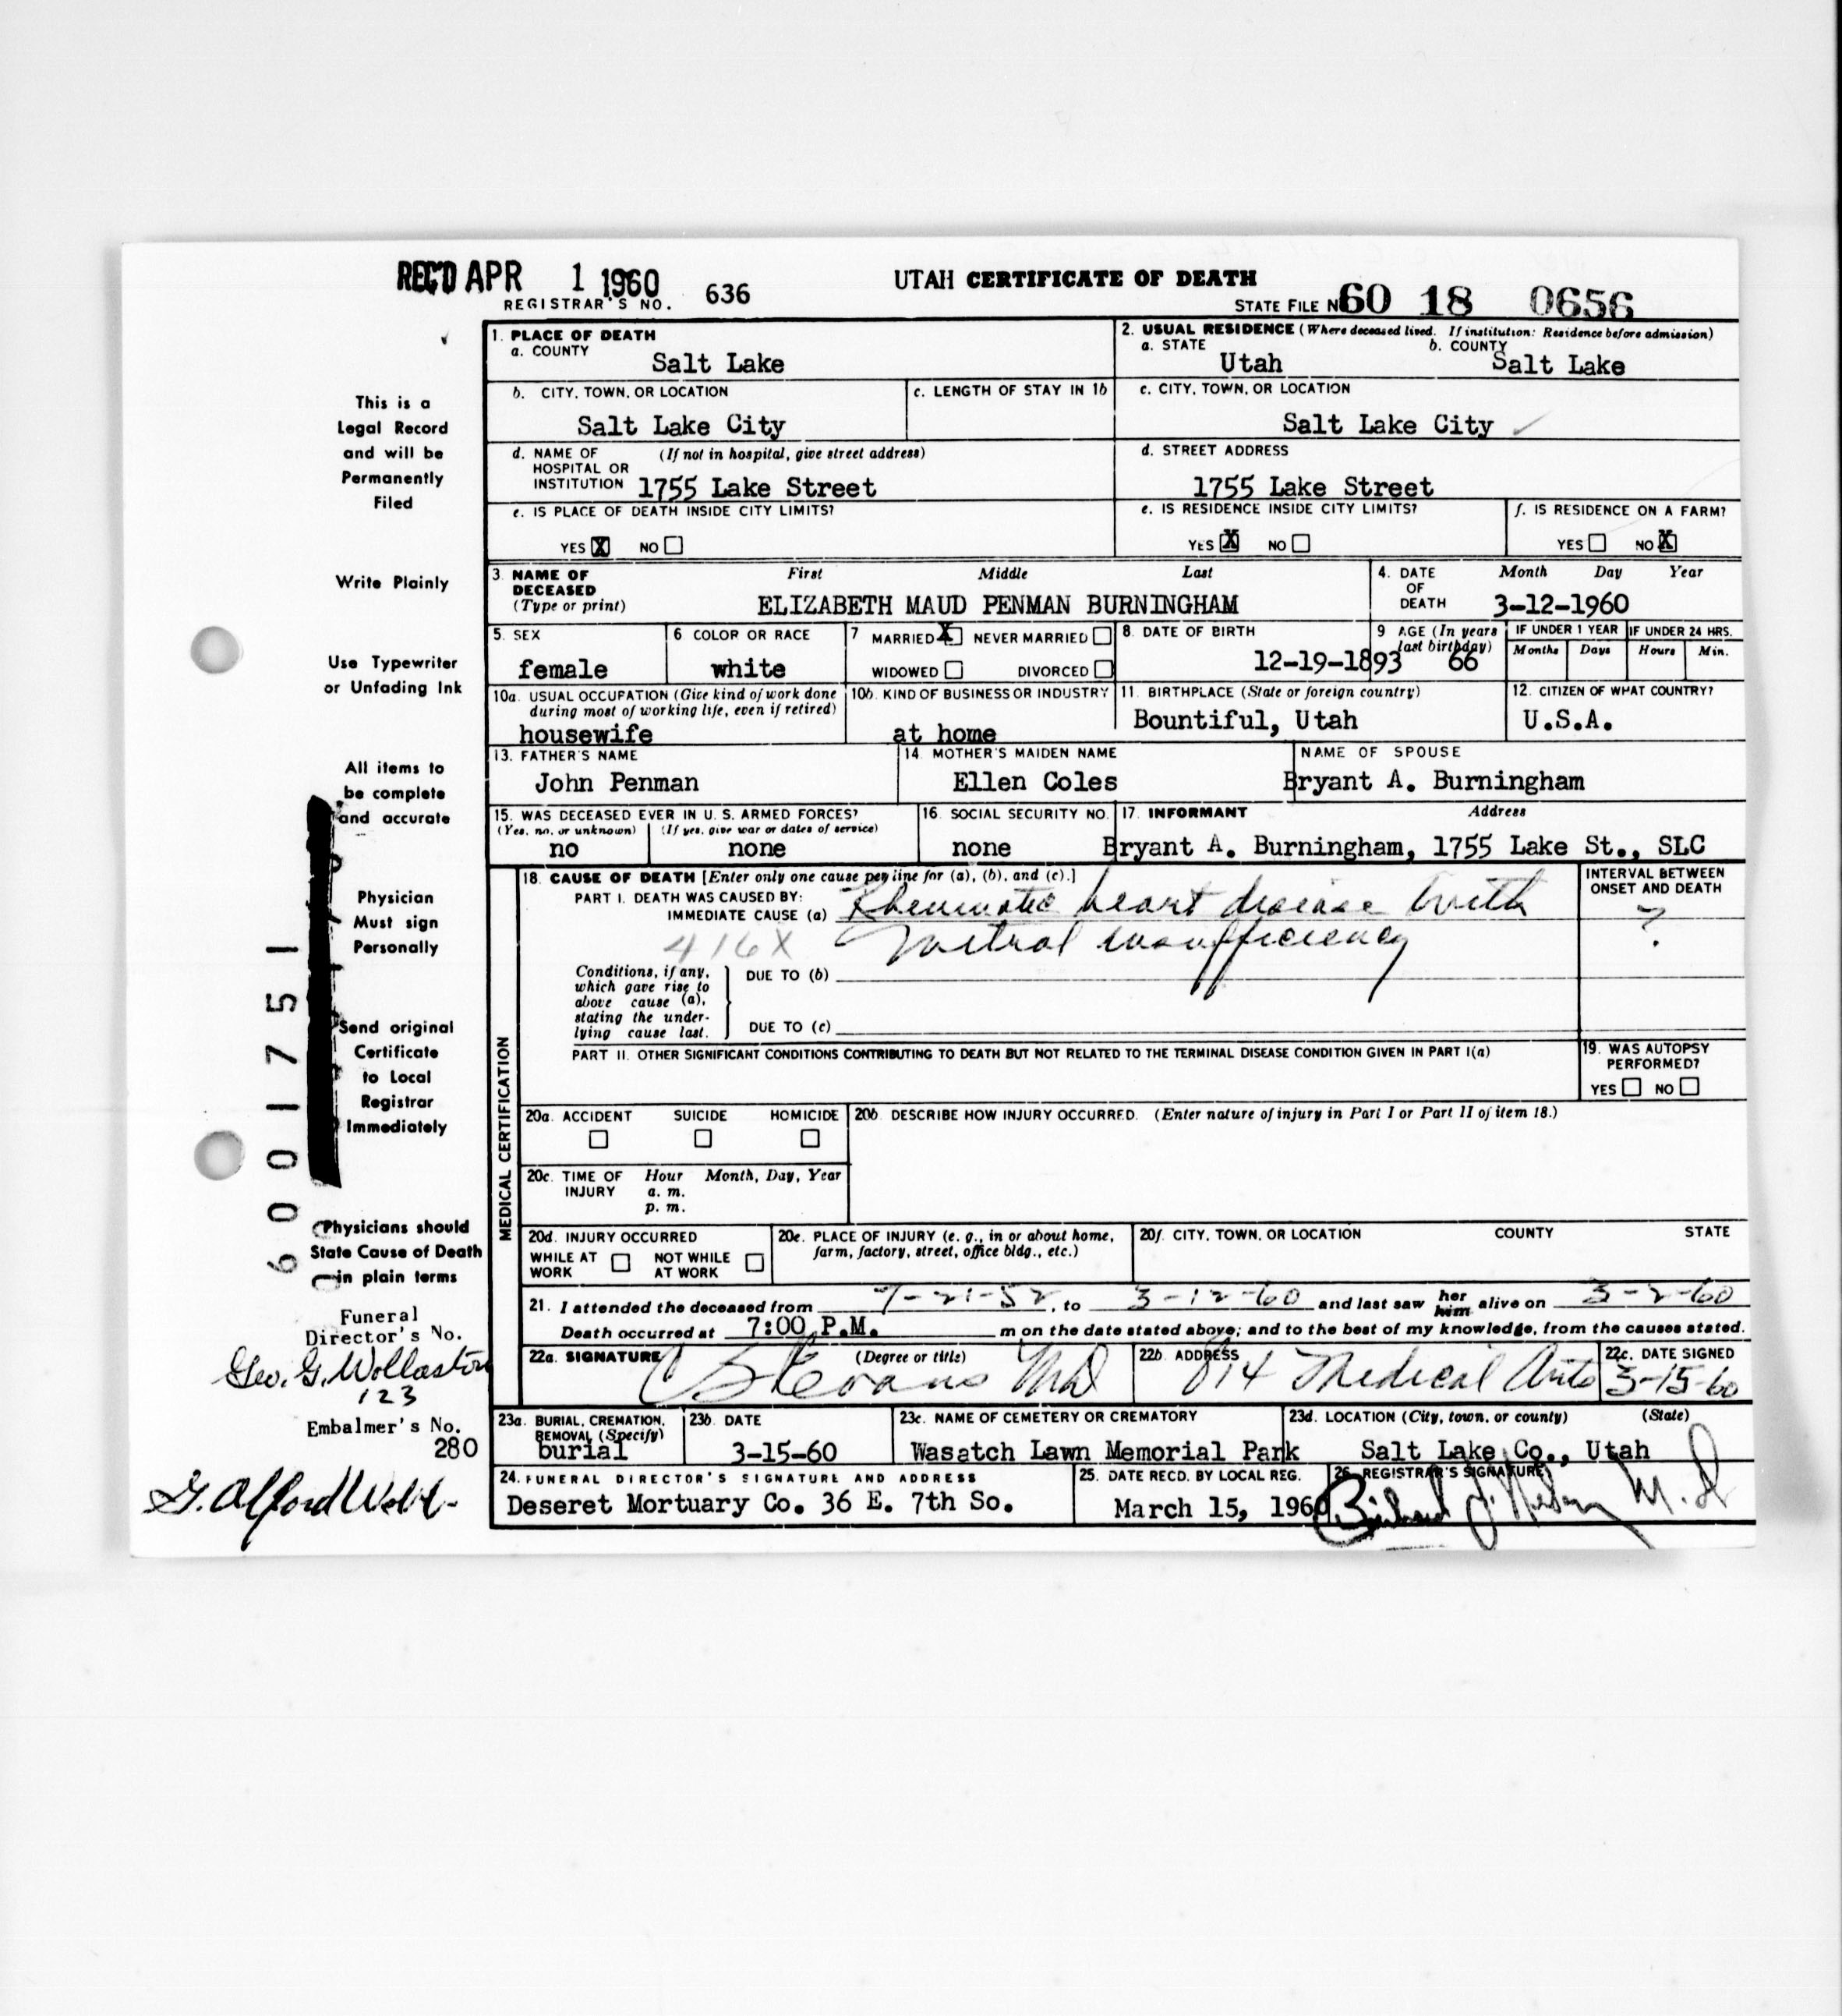 REC'D APR 1 1960
UTAH CERTIFICATE OF DEATH
REGISTRAR'S NO. 636
STATE FILE No 60 18 0656
This is a
Legal Record
and will be
Permanently
Filed
Write Plainly
Use Typewriter
or Unfading Ink
All items to
be complete
and accurate
Physician
Must sign
Personally
Send original
Certificate
to Local
Registrar
Immediately
Physicians should
State Cause of Death
in plain terms
6001751
Funeral
Director's No.
Geo. G. Wollaston
123
Embalmer's No.
280
1. PLACE OF DEATH
a. COUNTY
Salt Lake
2. USUAL RESIDENCE (Where deceased lived. If institution: Residence before admission)
a. STATE b. COUNTY
Utah Salt Lake
b. CITY, TOWN, OR LOCATION
Salt Lake City
c. LENGTH OF STAY IN 1b
c. CITY, TOWN, OR LOCATION
Salt Lake City
d. NAME OF (If not in hospital, give street address)
HOSPITAL OR
INSTITUTION 1755 Lake Street
d. STREET ADDRESS
1755 Lake Street
e. IS PLACE OF DEATH INSIDE CITY LIMITS?
YES X NO
e. IS RESIDENCE INSIDE CITY LIMITS?
YES X NO
f. IS RESIDENCE ON A FARM?
YES NO X
3. NAME OF DECEASED
(Type or print)
First Middle Last
ELIZABETH MAUD PENMAN BURNINGHAM
4. DATE OF DEATH
Month Day Year
3-12-1960
5. SEX
female
6 COLOR OR RACE
white
7 MARRIED X NEVER MARRIED
WIDOWED DIVORCED
8. DATE OF BIRTH
12-19-1893
9 AGE (In years last birthday)
66
IF UNDER 1 YEAR
Months Days
IF UNDER 24 HRS.
Hours Min.
10a. USUAL OCCUPATION (Give kind of work done
during most of working life, even if retired)
housewife
10b. KIND OF BUSINESS OR INDUSTRY
at home
11. BIRTHPLACE (State or foreign country)
Bountiful, Utah
12. CITIZEN OF WHAT COUNTRY?
U.S.A.
13. FATHER'S NAME
John Penman
14. MOTHER'S MAIDEN NAME
Ellen Coles
NAME OF SPOUSE
Bryant A. Burningham
15. WAS DECEASED EVER IN U. S. ARMED FORCES?
(Yes, no, or unknown) (If yes, give war or dates of service)
no none
16. SOCIAL SECURITY NO.
none
17. INFORMANT Address
Bryant A. Burningham, 1755 Lake St., SLC
MEDICAL CERTIFICATION
18. CAUSE OF DEATH [Enter only one cause per line for (a), (b), and (c).]
PART I. DEATH WAS CAUSED BY:
IMMEDIATE CAUSE (a) Rheumatic heart disease with
416X mitral insufficiency
INTERVAL BETWEEN
ONSET AND DEATH
?
Conditions, if any,
which gave rise to
above cause (a),
stating the under-
lying cause last.
DUE TO (b)
DUE TO (c)
PART II. OTHER SIGNIFICANT CONDITIONS CONTRIBUTING TO DEATH BUT NOT RELATED TO THE TERMINAL DISEASE CONDITION GIVEN IN PART I(a)
19. WAS AUTOPSY
PERFORMED?
YES NO
20a. ACCIDENT SUICIDE HOMICIDE
20b. DESCRIBE HOW INJURY OCCURRED. (Enter nature of injury in Part I or Part II of item 18.)
20c. TIME OF INJURY Hour Month, Day, Year
a. m.
p. m.
20d. INJURY OCCURRED
WHILE AT WORK NOT WHILE AT WORK
20e. PLACE OF INJURY (e. g., in or about home,
farm, factory, street, office bldg., etc.)
20f. CITY, TOWN, OR LOCATION COUNTY STATE
21. I attended the deceased from 7-21-52, to 3-12-60 and last saw her him alive on 3-2-60
Death occurred at 7:00 P.M. m on the date stated above; and to the best of my knowledge, from the causes stated.
22a. SIGNATURE (Degree or title)
Evans MD
22b. ADDRESS
814 Medical Arts
22c. DATE SIGNED
3-15-60
23a. BURIAL, CREMATION,
REMOVAL (Specify)
burial
23b. DATE
3-15-60
23c. NAME OF CEMETERY OR CREMATORY
Wasatch Lawn Memorial Park
23d. LOCATION (City, town, or county) (State)
Salt Lake Co., Utah
24. FUNERAL DIRECTOR'S SIGNATURE AND ADDRESS
Deseret Mortuary Co. 36 E. 7th So.
25. DATE RECD. BY LOCAL REG.
March 15, 1960
26. REGISTRAR'S SIGNATURE
M.D